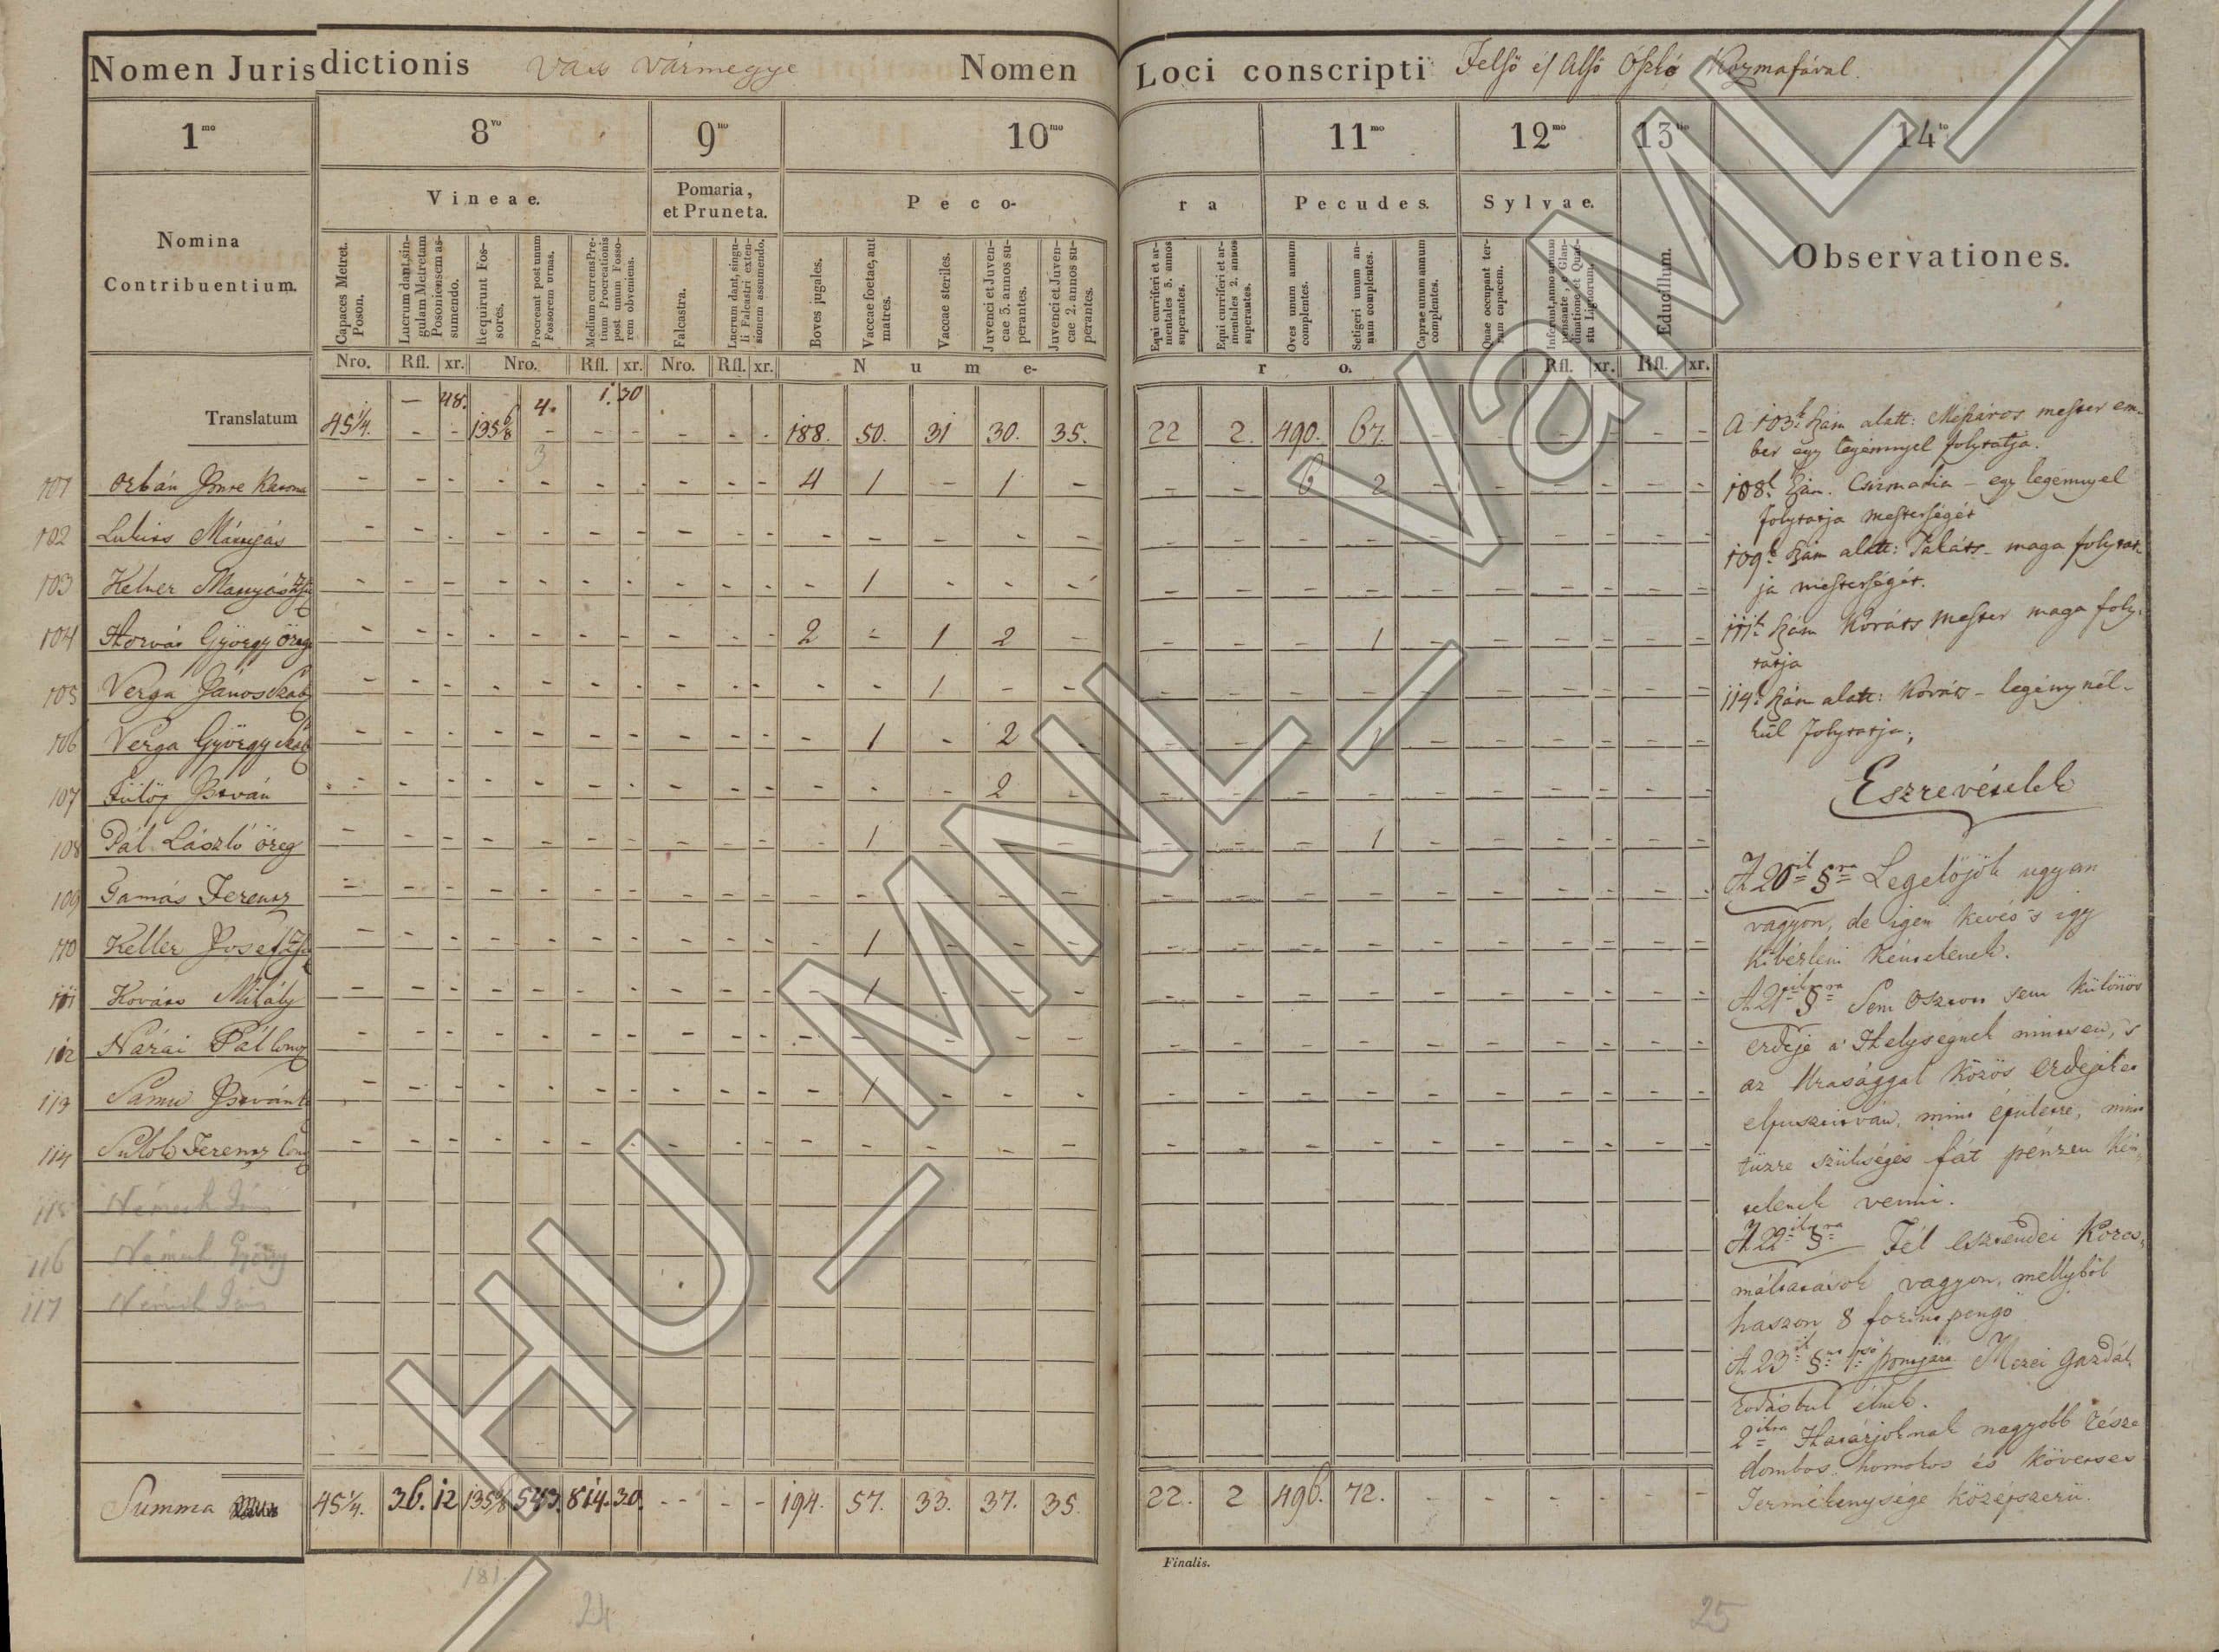 Nomen Jurisdictionis Vass Vármegye Nomen Loci conscripti Felső és Alsó Kozmafával.
1mo 8vo 9no 10mo 11mo 12mo 13tio 14to
Nomina Contribuentium.
Vineae.
Pomaria, et Pruneta.
Pecora
Pecudes.
Sylvae.
Educillum.
Observationes.
Capaces Metret. Poson.
Lucrum dant, singulam Metretam Posoniensem assumendo.
Requirunt Fossores.
Procreant post unum Fossorem urnas.
Medium currens Pretium Procreationis post unum Fossorem obveniens.
Falcastra.
Lucrum dant, singuli Falcastri extensionem assumendo.
Boves jugales.
Vaccae foetae, aut matres.
Vaccae steriles.
Juvenci et Juvencae 3. annos superantes.
Juvenci et Juvencae 2. annos superantes.
Equi curriferi et armentales 3. annos superantes.
Equi curriferi et armentales 2. annos superantes.
Oves unum annum complentes.
Setigeri unum annum complentes.
Caprae unum annum complentes.
Quae occupant terram capacem.
Inferunt, anno annum pensante, e Glandinatione et Quaestu Lignorum.
Nro. Rfl. xr. Nro. Rfl. xr. Nro. Rfl. xr. Nume-
ro. Rfl. xr. Rfl. xr.
— 48. 4. 1. 30
Translatum 45 1/4. - - 135 6/8 - - - - - - 188. 50. 31 30. 35. 22 2. 490. 67. - - - - - -
3
101 Orbán Imre - - - - - - - - - - 4 1 - 1 - - - 6 2 - - - - - -
102 Lukács Mátyás - - - - - - - - - - - - - - - - - - - - - - - - -
103 Kelner Mátyás - - - - - - - - - - - 1 - - - - - - - - - - - - -
104 Horvát György Öreg - - - - - - - - - - 2 - 1 2 - - - - 1 - - - - - -
105 Verga János - - - - - - - - - - - - 1 - - - - - - - - - - - -
106 Verga György - - - - - - - - - - - 1 - 2 - - - - 1 - - - - - -
107 Fülöp István - - - - - - - - - - - - - 2 - - - - - - - - - - -
108 Pál László öreg - - - - - - - - - - - 1 - - - - - - 1 - - - - - -
109 Tamás Ferencz - - - - - - - - - - - - - - - - - - - - - - - - -
110 Keller Josef - - - - - - - - - - - 1 - - - - - - - - - - - - -
111 Kováts Mihály - - - - - - - - - - - 1 - - - - - - - - - - - - -
112 Nárai Pál - - - - - - - - - - - - - - - - - - - - - - - - -
113 Samu István - - - - - - - - - - - 1 - - - - - - - - - - - - -
114 Ferencz - - - - - - - - - - - - - - - - - - - - - - - - -
115 Németh
116 Németh György
117 Németh
Summa 45 1/4. 36. 12 135 6/8 543. 814. 30. - - - - 194. 57. 33. 37. 35. 22. 2 496. 72. - - - - - -
A 103k szám alatt: Mészáros mester em-
ber egy legénnyel folytatja.
108k szám. Csizmadia - egy legénnyel
folytatja mesterségét
109k szám alatt: Takáts - maga folytat-
ja mesterségét.
111k szám Kováts mester maga foly-
tatja
114k szám alatt: Kováts - legény nél-
kül folytatja.
Eszrevételek
A 20ik §ra Legelőjök ugyan
vagyon, de igen kevés 's így
kibérleni kéntelenek.
A 21ik §ra Sem osztott sem különös
erdeje a' Helységnek nintsen, 's
az Urasággal közös erdejek
elpusztitván, mint épületre, mint
tüzre szükséges fát pénzen kén-
telenek venni.
A 22ik §ra Fél esztendei Korcs-
máltatások vagyon, mellyböl
haszon 8 forint pengö
A 23ik §nak 1ső pontjára Mezei gazdál-
kodásbul élnek.
2ikra Határjoknak nagyobb része
dombos, homokos és köveises
Termékenysége középszerü.
Finalis.
181
24
25
HU_MNL_VaML_I